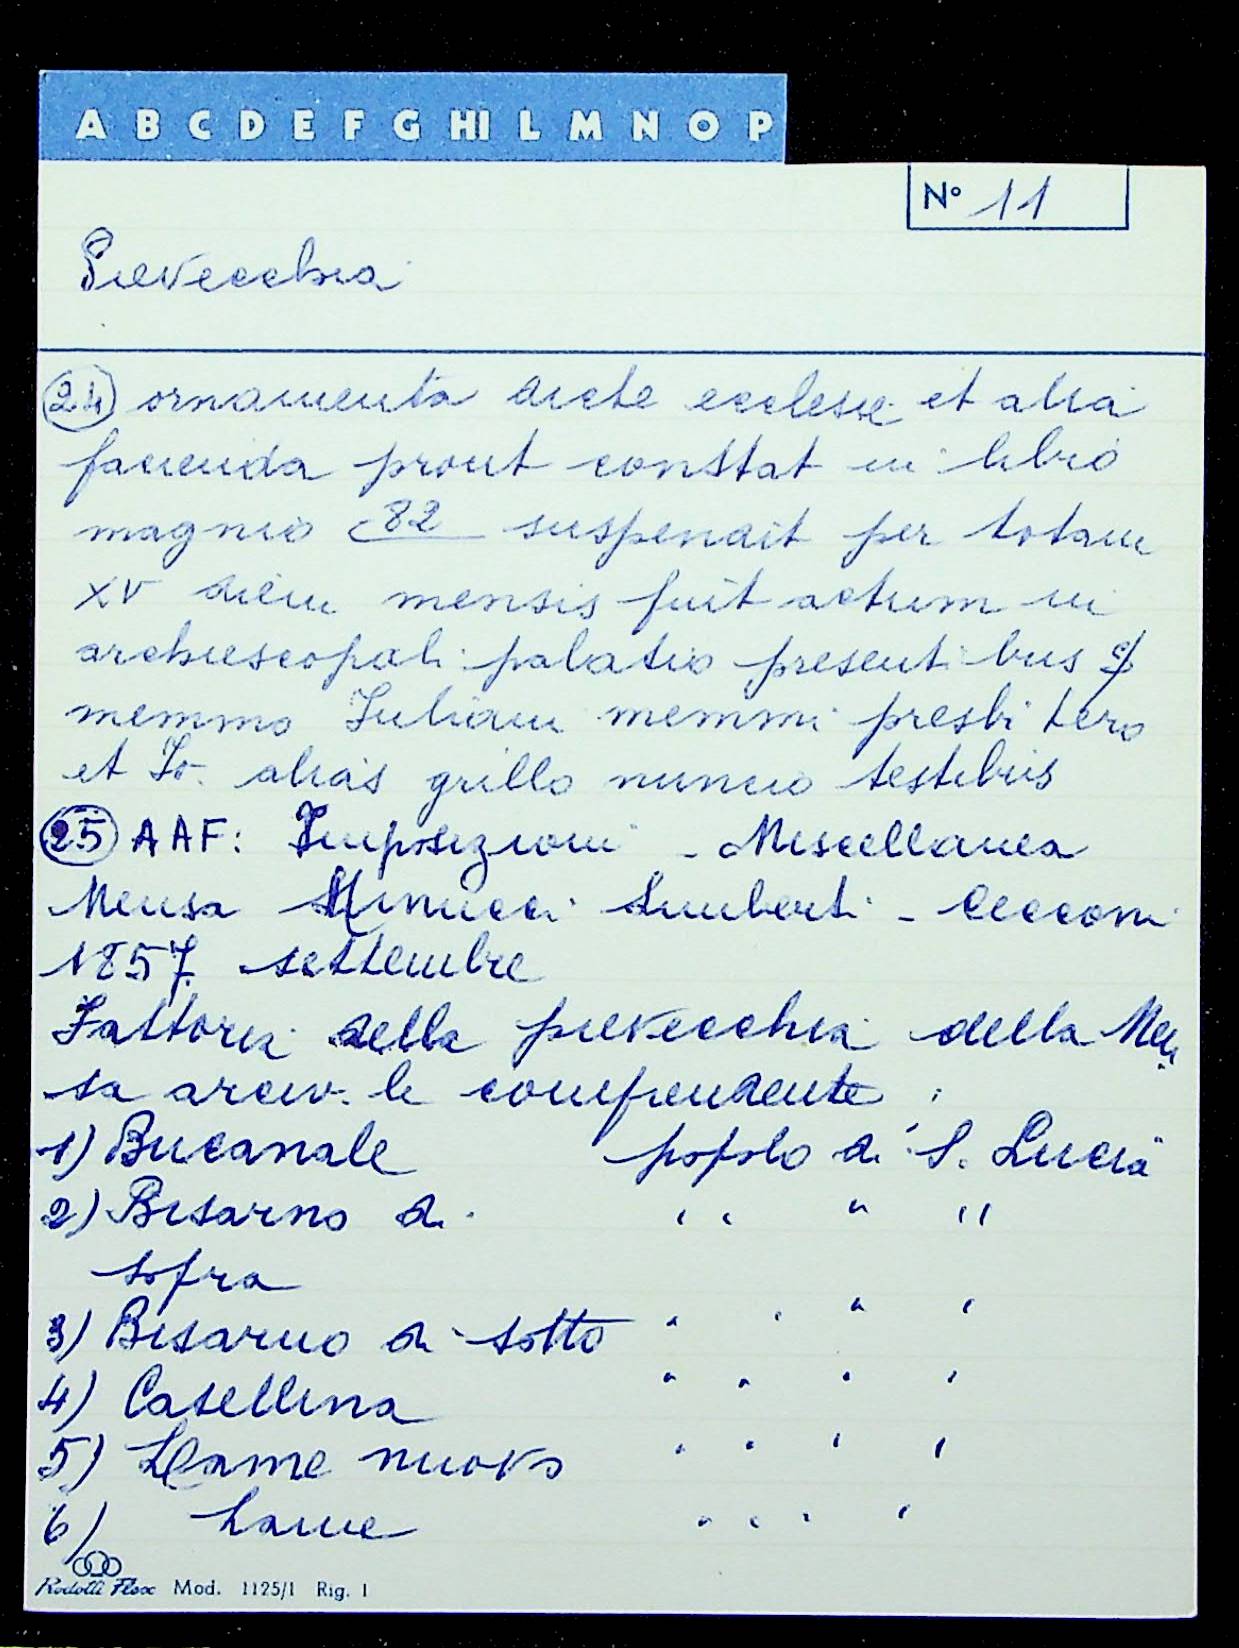 A B C D E F G HI L M N O P
N° 11
Pievecchia
24) ornamenta dicte ecclesie et alia
facienda prout constat in libro
magnio c 82 suspendit per totam
XV diem mensis fuit actum in
archiescopali palatio presentibus
memmo Iuliam memmi presbitero
et Io. alias grillo nuncio testibus
25) AAF: Imposizioni - Miscellanea
Mensa Minucci Limberti - Cecconi
1857 settembre
Fattoria della pievecchia della Men
sa arciv.le comprendente:
1) Bucanale popolo di S. Lucia
2) Bisarno di " " " "
sopra
3) Bisarno di sotto " " " "
4) Casellina " " " "
5) Lame nuovo " " " "
6) Lame " " " "
Rodolli Flex Mod. 1125/1 Rig. 1